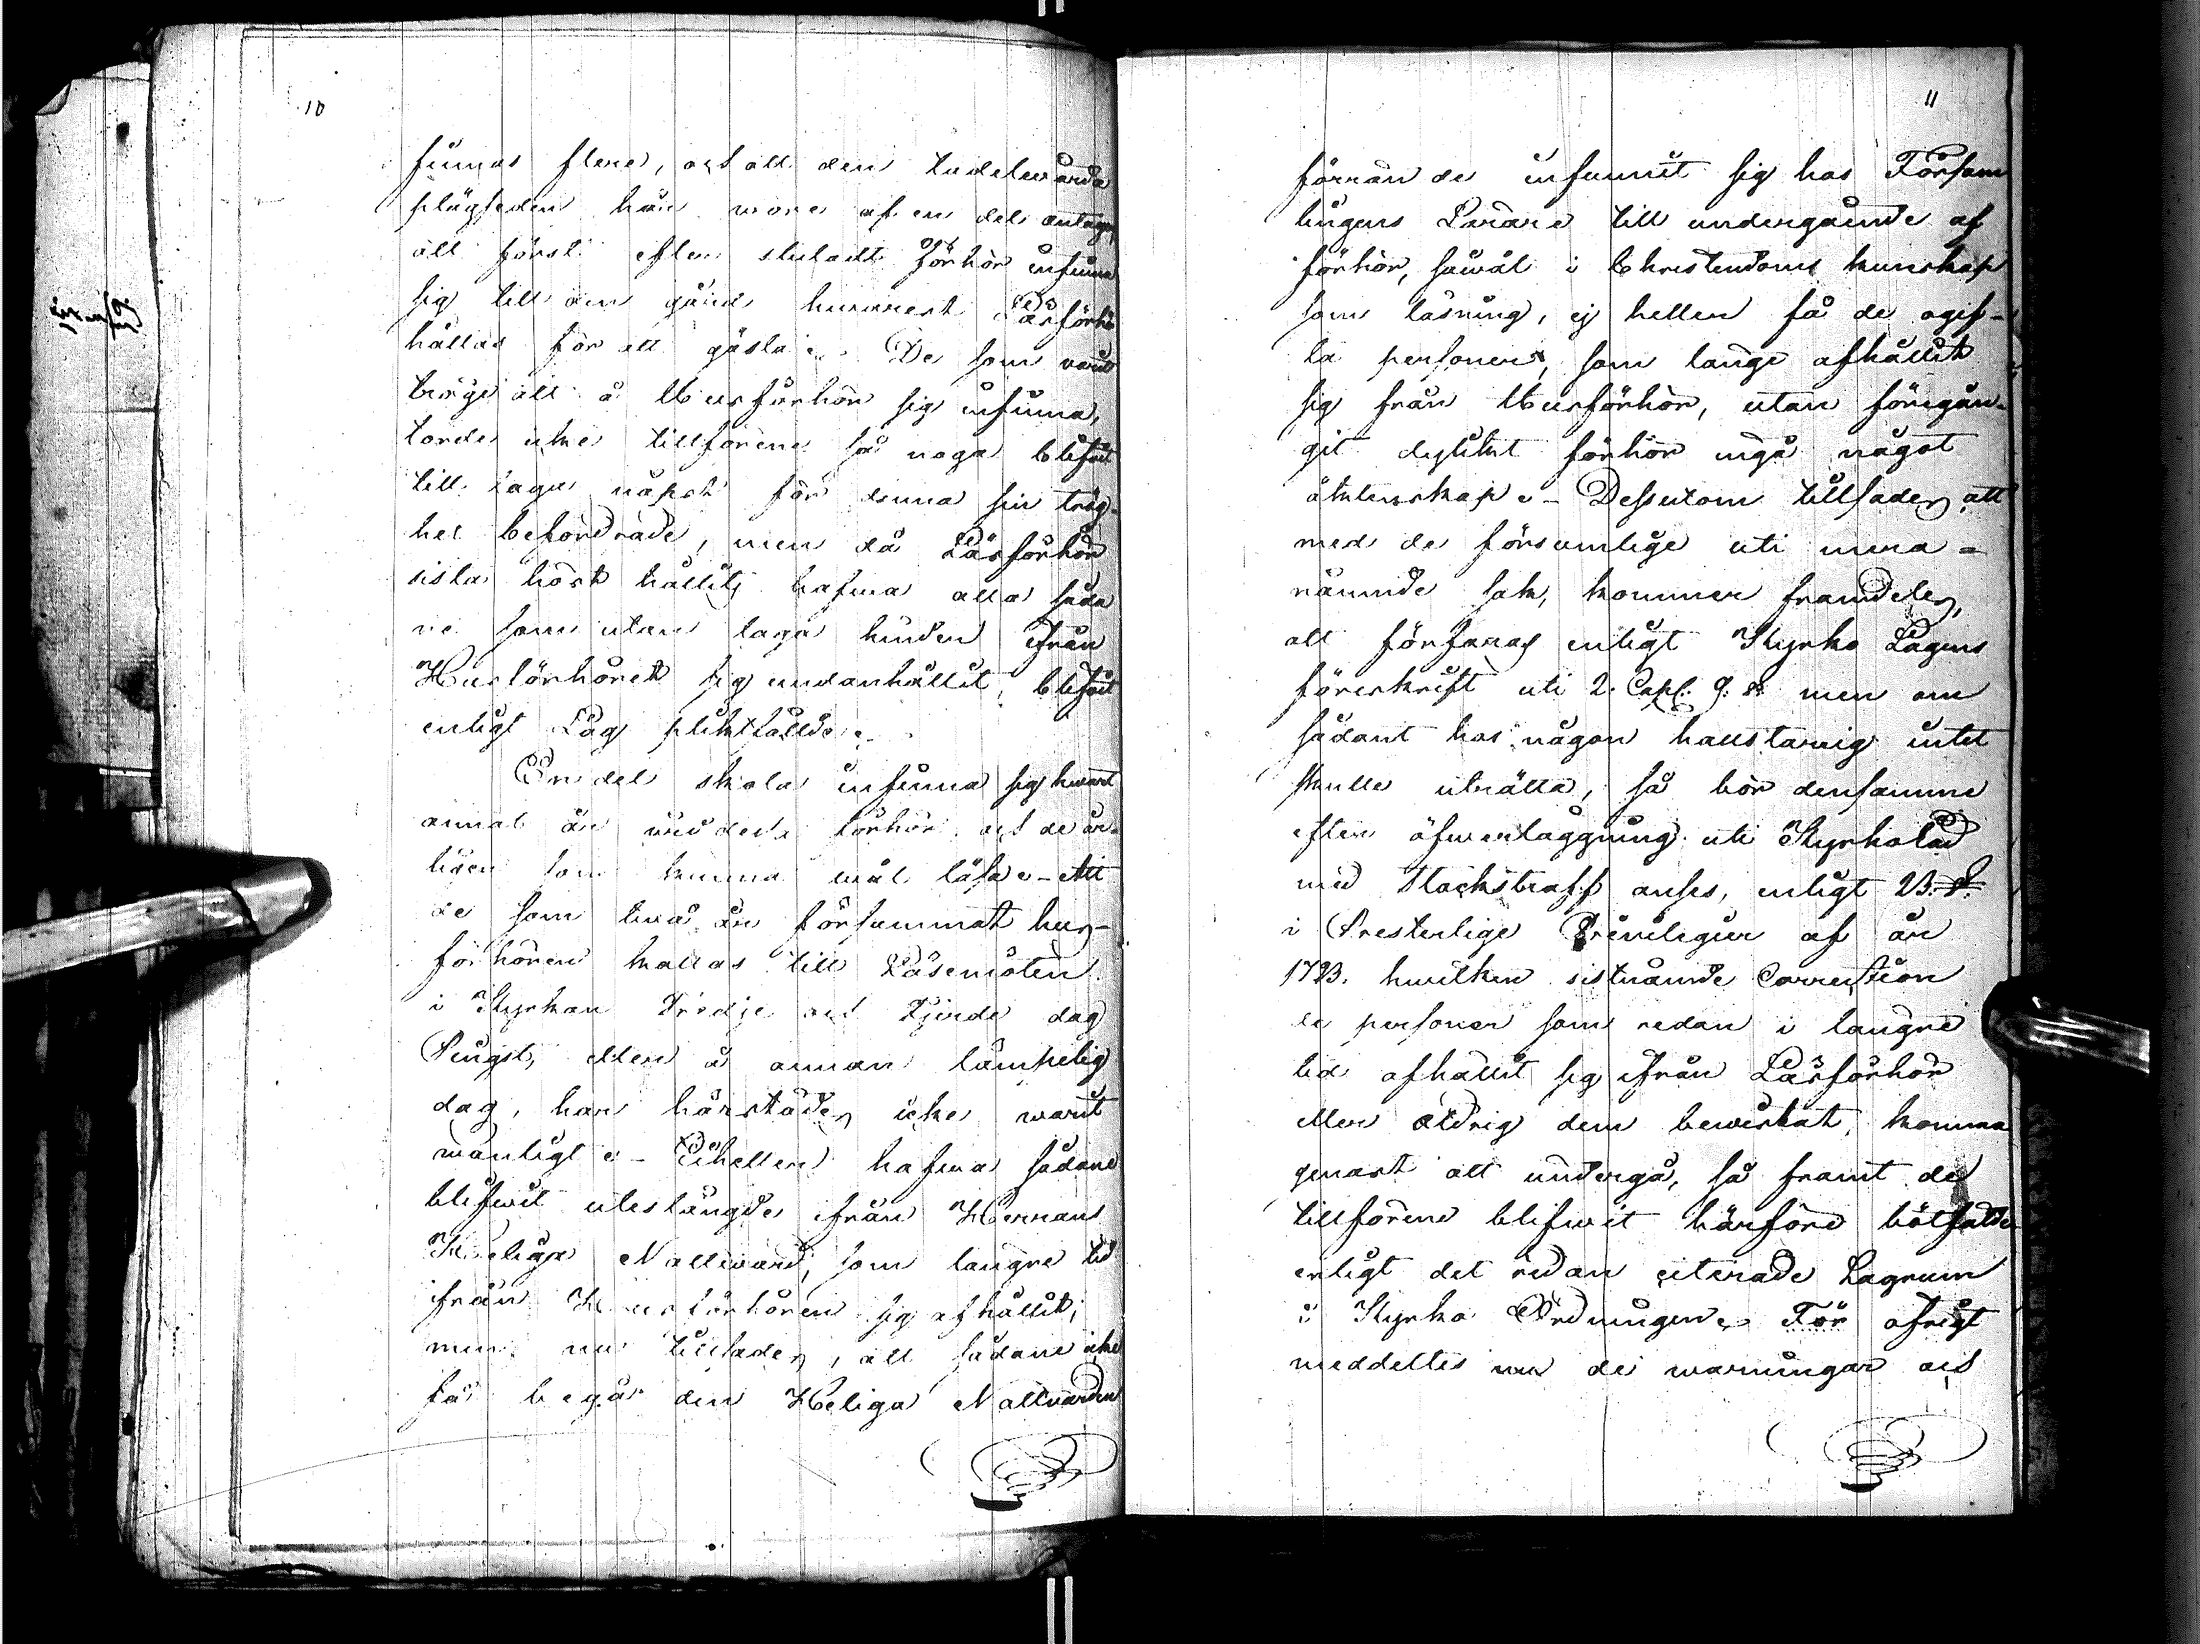 10
finnas flere, och att den tadelwärda
plägseden här wore af en del antagen,
att först efter slutadt förhör infinna
sig till den gård hwarest Läsförhör
hållas för att gästa. De som warit
tröge att å Husförhör sig infinna,
torde icke tillförene så noga blifwit
till laga näpst för denna sin trög-
het befordrade, men då Läsförhör
sista höst hållits hafwa alla såda
ne som utan laga hinder ifrån
Husförhöret sig undanhållit, blifwit
enligt Lag pliktfällde.
En del skola infinna sig hwart
annat år wid dess förhör och de är
som kunna wäl läsa. Att
de som twå år försummat hus-
förhören kallas till Läsemöten
i Kyrkan Tredje och Fjerde dag
Pingst, eller å annan lämpelig
dag, har härstädes icke warit
wanligt. Ej heller hafwa sådane
blifwit utestängde ifrån Herrans
Heliga Nattward, som längre tid
ifrån Husförhören sig afhållit;
men nu tillsades, att sådane icke
få begå den Heliga Nattwarden
11
förrän de infunnit sig hos Försam
lingens Lärare till undergående af
förhör, såwäl i Christendoms kunskap
som läsning, ej heller få de ogif-
ta personer, som länge afhållit
sig från Husförhör, utan föregån-
git dylikt förhör ingå något
äktenskap. Dessutom tillsades, att
med de försumlige uti nyss
nämnde sak, kommer framdeles,
att förfaras enligt Kyrko Lagens
föreskrift uti 2. Cap. 9. § men om
sådant hos någon hallstarrig intet
skulle uträtta, så bör densamme
efter öfwerläggning uti Kyrkoråd
med Stockstraff anses, enligt 23. §.
i Presterlige Privilegier af år
1723. hwilken sistnämde Correction
de personer som redan i längre
tid afhållit sig ifrån Läsförhör
eller aldrig dem bewistat, komma
genast att undergå, så framt de
tillförene blifwit härföre bötfälde
enligt det redan citerade Lagrum
i Kyrko Ordningen. För öfrigt
meddeltes de warningar och